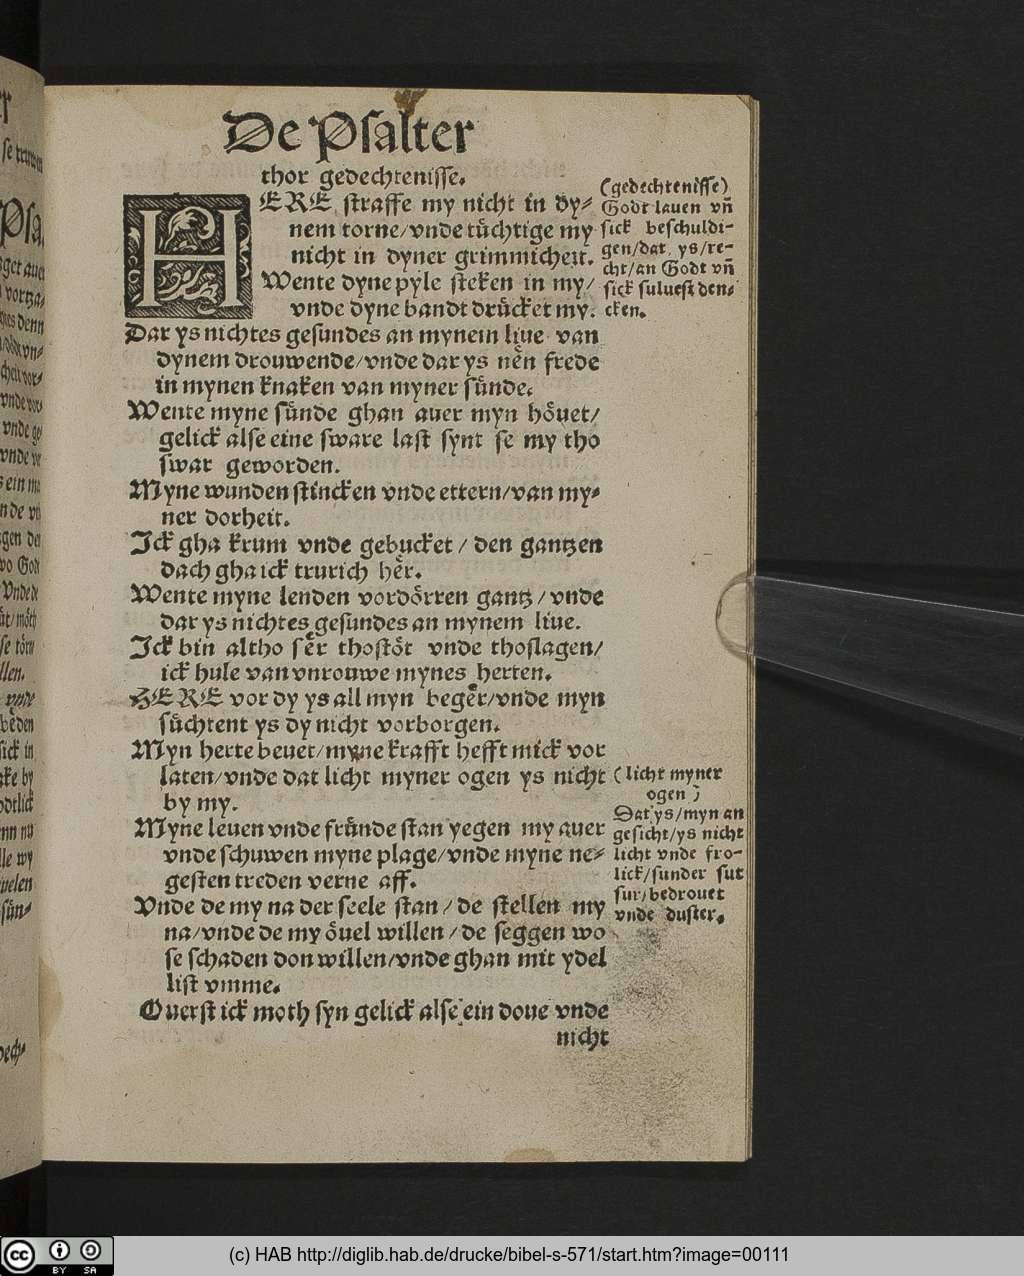 De Psalter
thor gedechtenisse.
HERE straffe my nicht in dy⸗
nem torne/vnde tüchtige my
nicht in dyner grimmicheit.
Wente dyne pyle steken in my/
vnde dyne handt drücket my.
Dar ys nichtes gesundes an mynem liue van
dynem drouwende/vnde dar ys nen frede
in mynen knaken van myner sünde.
Wente myne sünde ghan auer myn höuet/
gelick alse eine sware last synt se my tho
swar geworden.
Myne wunden stincken vnde ettern/van my⸗
ner dorheit.
Ick gha krum vnde gebucket/ den gantzen
dach gha ick trurich her.
Wente myne lenden vordörren gantz/ vnde
dar ys nichtes gesundes an mynem liue.
Ick bin altho ser thostöt vnde thoslagen/
ick hule van vnrouwe mynes herten.
HERE vor dy ys all myn beger/vnde myn
süchtent ys dy nicht vorborgen.
Myn herte beuet/myne krafft hefft mick vor
laten/vnde dat licht myner ogen ys nicht
by my.
Myne leuen vnde fründe stan yegen my auer
vnde schuwen myne plage/vnde myne ne⸗
gesten treden verne aff.
Vnde de my na der seele stan/ de stellen my
na/vnde de my öuel willen/ de seggen wo
se schaden don willen/vnde ghan mit ydel
list vmme.
Ouerst ick moth syn gelick alse ein doue vnde
nicht
(gedechtenisse)
Godt lauen vn̄
sick beschuldi⸗
gen/dat ys/re⸗
cht/an Godt vn̄
sick suluest den⸗
cken.
(licht myner
ogen)
Dat ys/myn an
gesicht/ys nicht
licht vnde fro⸗
lick/sunder sut
sur/bedrouet
vnde duster.
(c) HAB http://diglib.hab.de/drucke/bibel-s-571/start.htm?image=00111
cc BY SA